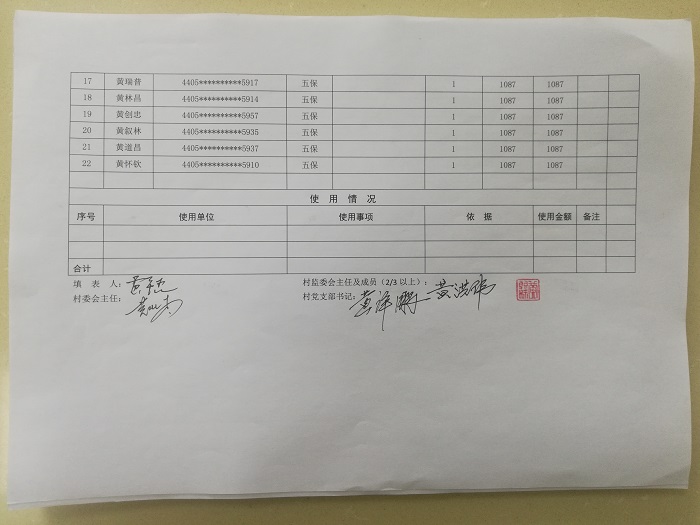 17 黄瑞普 4405**********5917 五保 1 1087 1087
18 黄林昌 4405**********5914 五保 1 1087 1087
19 黄创忠 4405**********5957 五保 1 1087 1087
20 黄叙林 4405**********5935 五保 1 1087 1087
21 黄道昌 4405**********5937 五保 1 1087 1087
22 黄怀钦 4405**********5910 五保 1 1087 1087
使 用 情 况
序号 使用单位 使用事项 依 据 使用金额 备注
合计
填 表 人： 村监委会主任及成员（2/3 以上）：
村委会主任： 村党支部书记： 黄泽鹏 黄洪伟